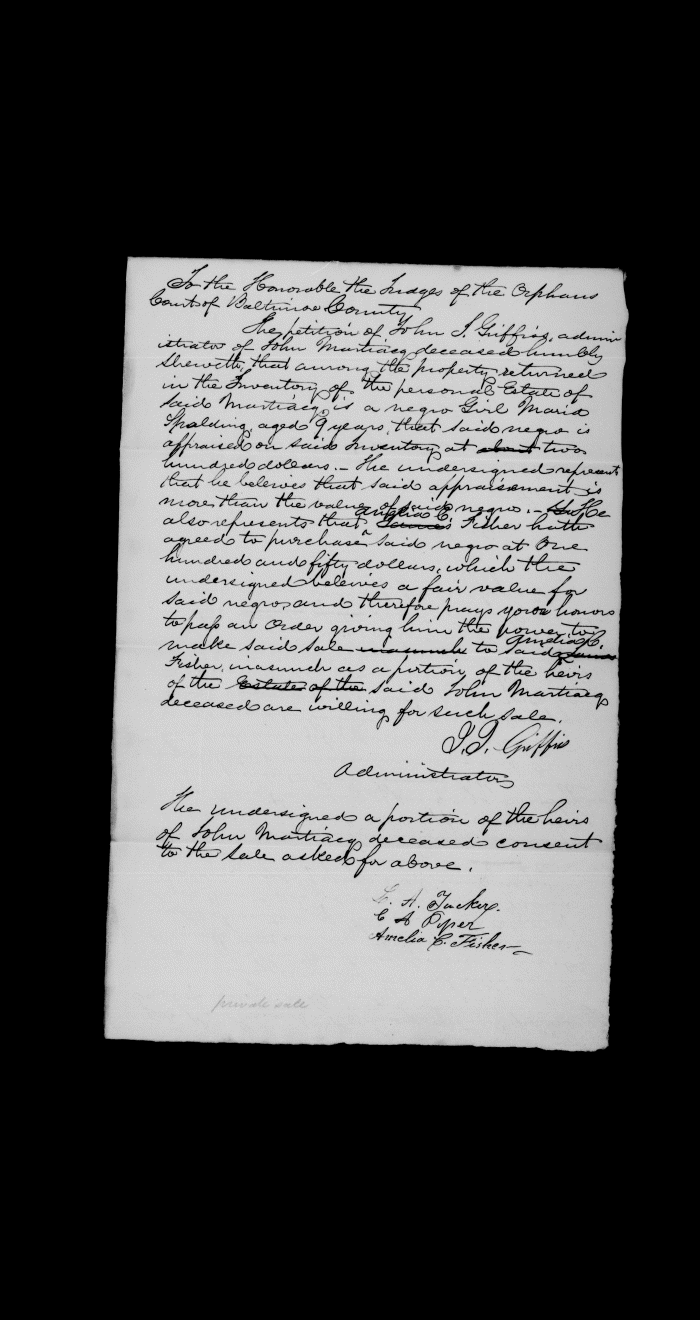 To the Honorable the Judges of the Orphans
Court of Baltimore County
The petition of John T. Griffis, admin
istrator of John Martiacq deceased humbly
sheweth, that among the property returned
in the Inventory of the personal Estate of
said Martiacq, is a negro Girl Maria
Spalding, aged 9 years, that said negro is
appraised on said Inventory at about two
hundred dollars. – The undersigned represents
that he beleives that said appraisement is
more than the value of said negro. – He
also represents that Amelia C. James Fisher hath
agreed to purchase said negro at One
hundred and fifty dollars, which the
undersigned beleives a fair value for
said negro, and therefore prays your honors
to pass an Order giving him the power to
make said sale inasmuch to said Amelia C. James
Fisher, inasmuch as a portion of the heirs
of the Estate of the said John Martiacq
deceased are willing for such sale.
J. T. Griffis
Administrator
The undersigned a portion of the heirs
of John Martiacq deceased consent
to the sale asked for above.
A. Tucker.
C A Piper
Amelia C. Fisher
private sale